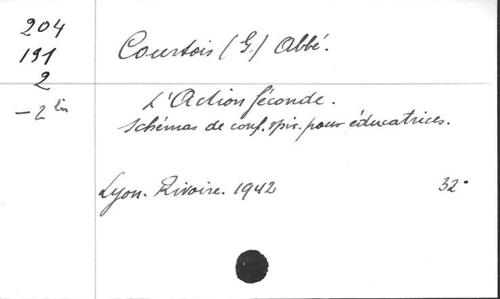 204
191
2
- 2 bis
Courtois (G.) Abbé.
L'Action féconde.
Schémas de conf. spir. pour éducatrices.
Lyon. Rivoire. 1942
32°